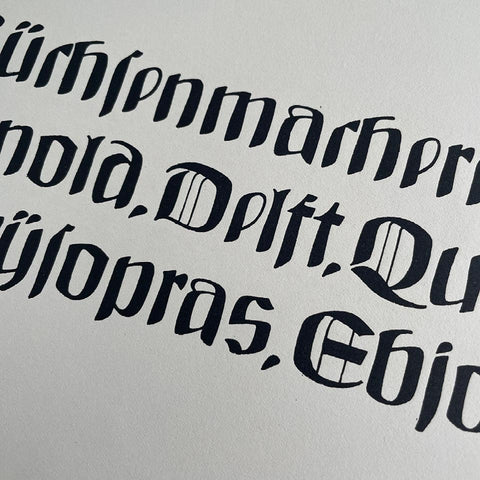 üchſenmachere
nola, Delft, Qu
ÿſopras, Ebjo